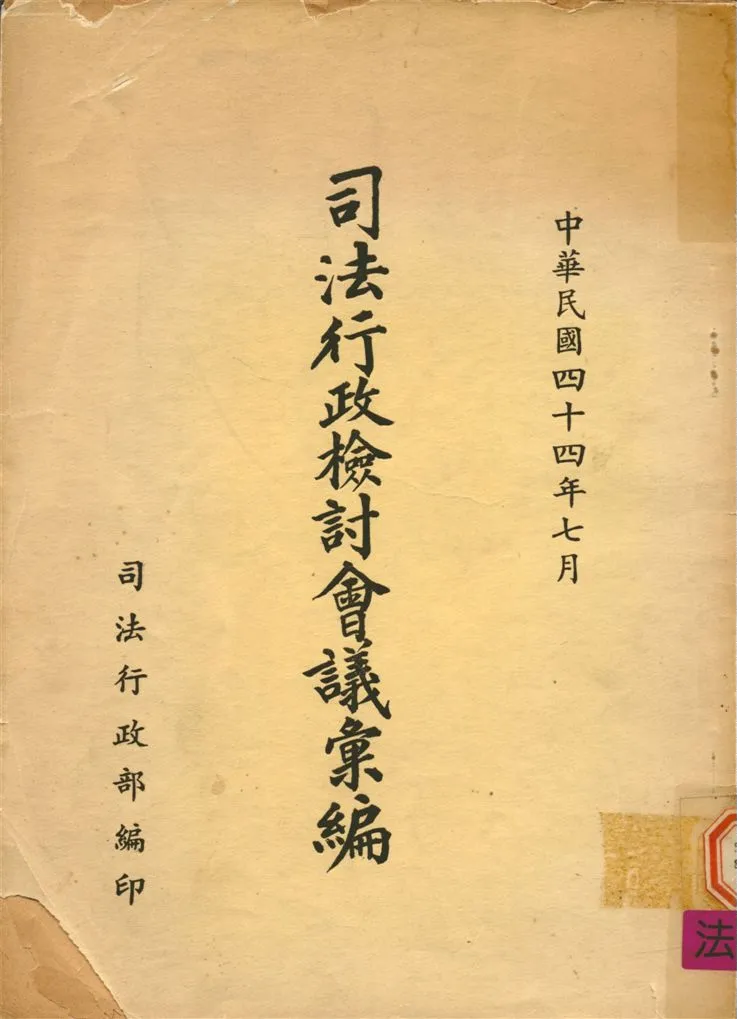 中華民國四十四年七月
司法行政檢討會議彙編
司法行政部編印
法